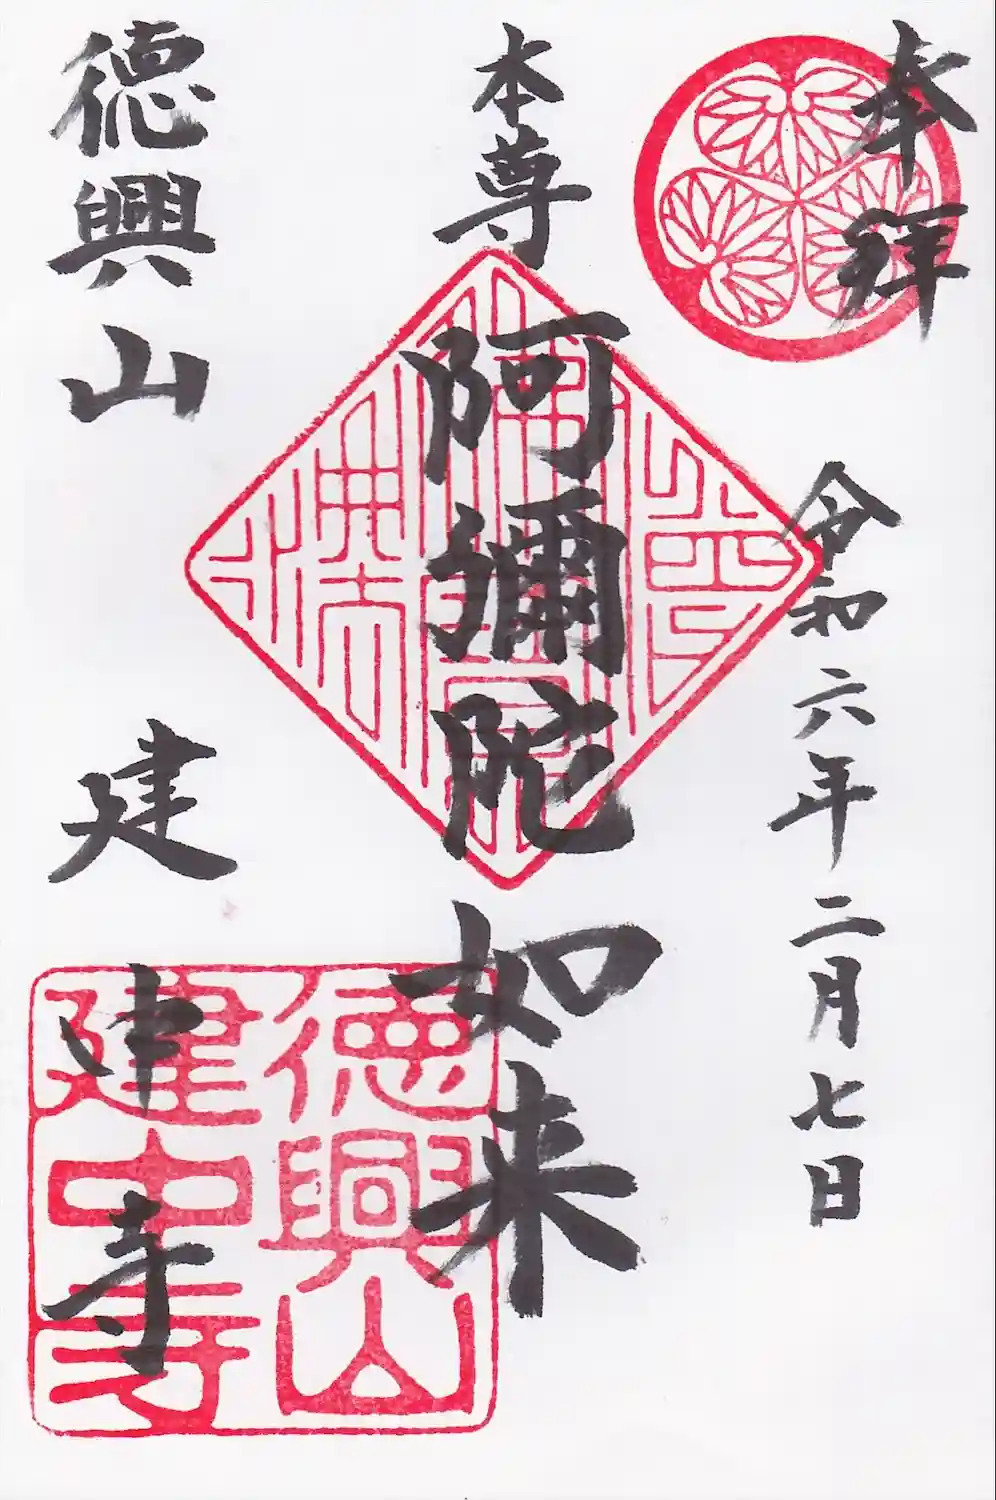 奉拝
令和六年二月七日
本尊
阿彌陀如来
德興山
建中寺
德興山
建中寺